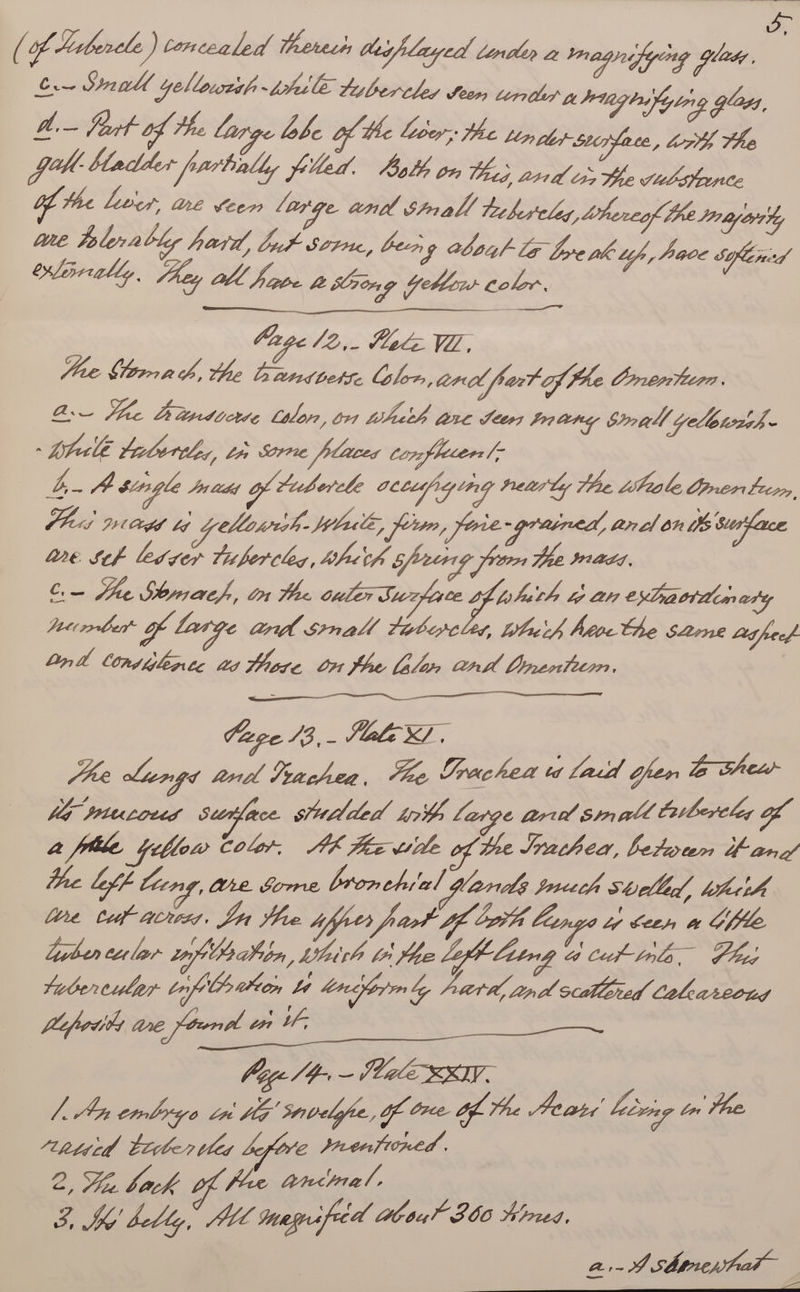 5.
(of Tubercle) concealed therein displayed under a magnifying glass.
c.- Small yellowish-white tubercles seen under a magnifying glass.
d.- Part of the large lobe of the liver; the under surface, with the
gall-bladder partially filled. Both on this, and in the substance
of the liver, are seen large and small tubercles, whereof the majority
are tolerably hard, but some, being about to break up, have softened
externally. They all have a strong yellow color.
Page 12.- Plate VII.
The Stomach, the transverse Colon, and part of the Omentum.
a.- The transverse Colon, on which are seen many small yellowish-
-white tubercles, in some places confluent;
b.- A single mass of tubercle occupying nearly the whole Omentum.
This mass is yellowish-white, firm, fine-grained, and on its' surface
are set lesser tubercles, which spring from the mass.
c.- The Stomach, on the outer surface of which is an extraordinary
number of large and small tubercles, which have the same aspect
and consistence as those on the Colon and Omentum.
Page 13.- Plate XI.
The Lungs and Trachea. The Trachea is laid open to shew
its' mucous surface studded with large and small tubercles of
a pale yellow color. At the side of the Trachea, between it and
the left lung, are some bronchial glands much swelled, which
are cut across. In the upper part of both lungs is seen a little
tubercular infiltration, which in the left lung is cut into. This
tubercular infiltration is uniformly hard, and scattered calcareous
deposits are found in it.
Page 14.- Plate XXIV.
1. An embryo in its' envelope, of one of the Acari living in the
raised tubercles before mentioned.
2, The back of the animal.
3. Its' belly. All magnified about 360 times.
a.- A somewhat